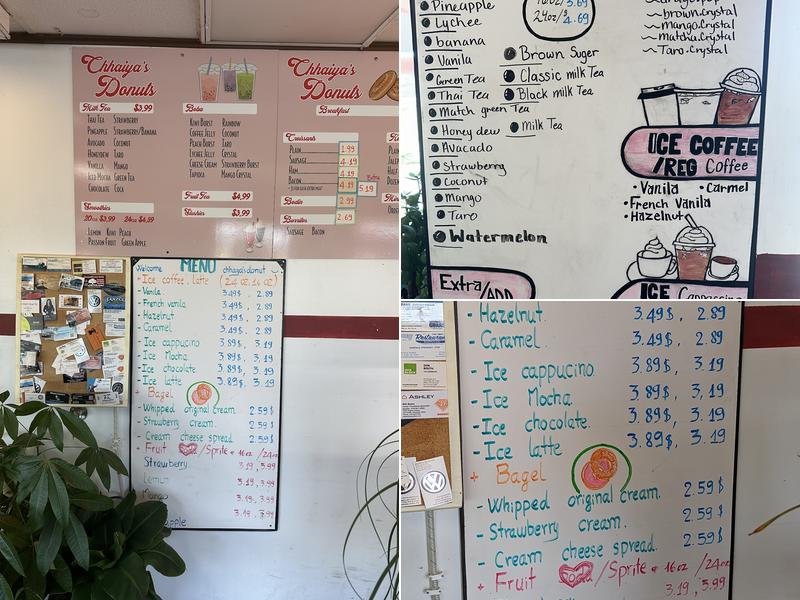 Chhaiya's
Donuts
Milk Tea $3.99
Thai Tea Strawberry
Pineapple Strawberry/Banana
Avocado Coconut
Honeydew Taro
Vanilla Mango
Iced Mocha Green Tea
Chocolate Coca
Smoothies
20oz $3.99 24oz $4.59
Lemon Kiwi Peach
Passion Fruit Green Apple
Boba
Kiwi Burst Rainbow
Coffee Jelly Coconut
Peach Burst Taro
Lychee Jelly Crystal
Cheese Cream Strawberry Burst
Tapioca Mango Crystal
Fruit Tea $4.99
Slushies $3.99
Chhaiya's
Donuts
Breakfast
Croissants
Plain 1.99
Sausage 4.19
Ham 4.19
Bacon 4.19
5.19
2.99
Burritos 2.69
Sausage Bacon
Welcome MENU chhaya's donut
+ Ice coffee, latte (24 oz, 16 oz)
Vanila 3.49$, 2.89
- French vanila 3.49$, 2.89
- Hazelnut 3.49$, 2.89
- Caramel 3.49$, 2.89
- Ice cappucino 3.89$, 3.19
- Ice Mocha 3.89$, 3.19
- Ice chocolate 3.89$, 3.19
- Ice latte 3.89$, 3.19
+ Bagel
- Whipped original cream. 2.59$
- Strawberry cream. 2.59$
- Cream cheese spread. 2.59$
+ Fruit Soda/Sprite * 16oz /24oz
Strawberry 3.19, 3.99
Lemon 3.19, 3.99
Mango 3.19, 3.99
3.19, 3.99
Pineapple
Lychee
banana
Vanila
Green Tea
Thai Tea
Match green Tea
Honey dew
Avacado
Strawberry
Coconut
Mango
Taro
Watermelon
Brown Suger
Classic milk Tea
Black milk Tea
Milk Tea
16oz/3.69
24oz/$4.69
~brown.crystal
~mango.Crystal
~Matcha.Crystal
~Taro.Crystal
ICE COFFEE
/REG Coffee
• Vanilla • Carmel
• French Vanilla
• Hazelnut
Extra/ADD
ICE Cappuccino
- Hazelnut 3.49$, 2.89
- Caramel 3.49$, 2.89
- Ice cappucino 3.89$, 3.19
- Ice Mocha 3.89$, 3.19
- Ice chocolate. 3.89$, 3.19
- Ice latte 3.89$, 3.19
+ Bagel
- Whipped original cream. 2.59$
- Strawberry cream. 2.59$
- Cream cheese spread. 2.59$
+ Fruit Soda/Sprite * 16oz /24oz
3.19, 3.99
ASHLEY